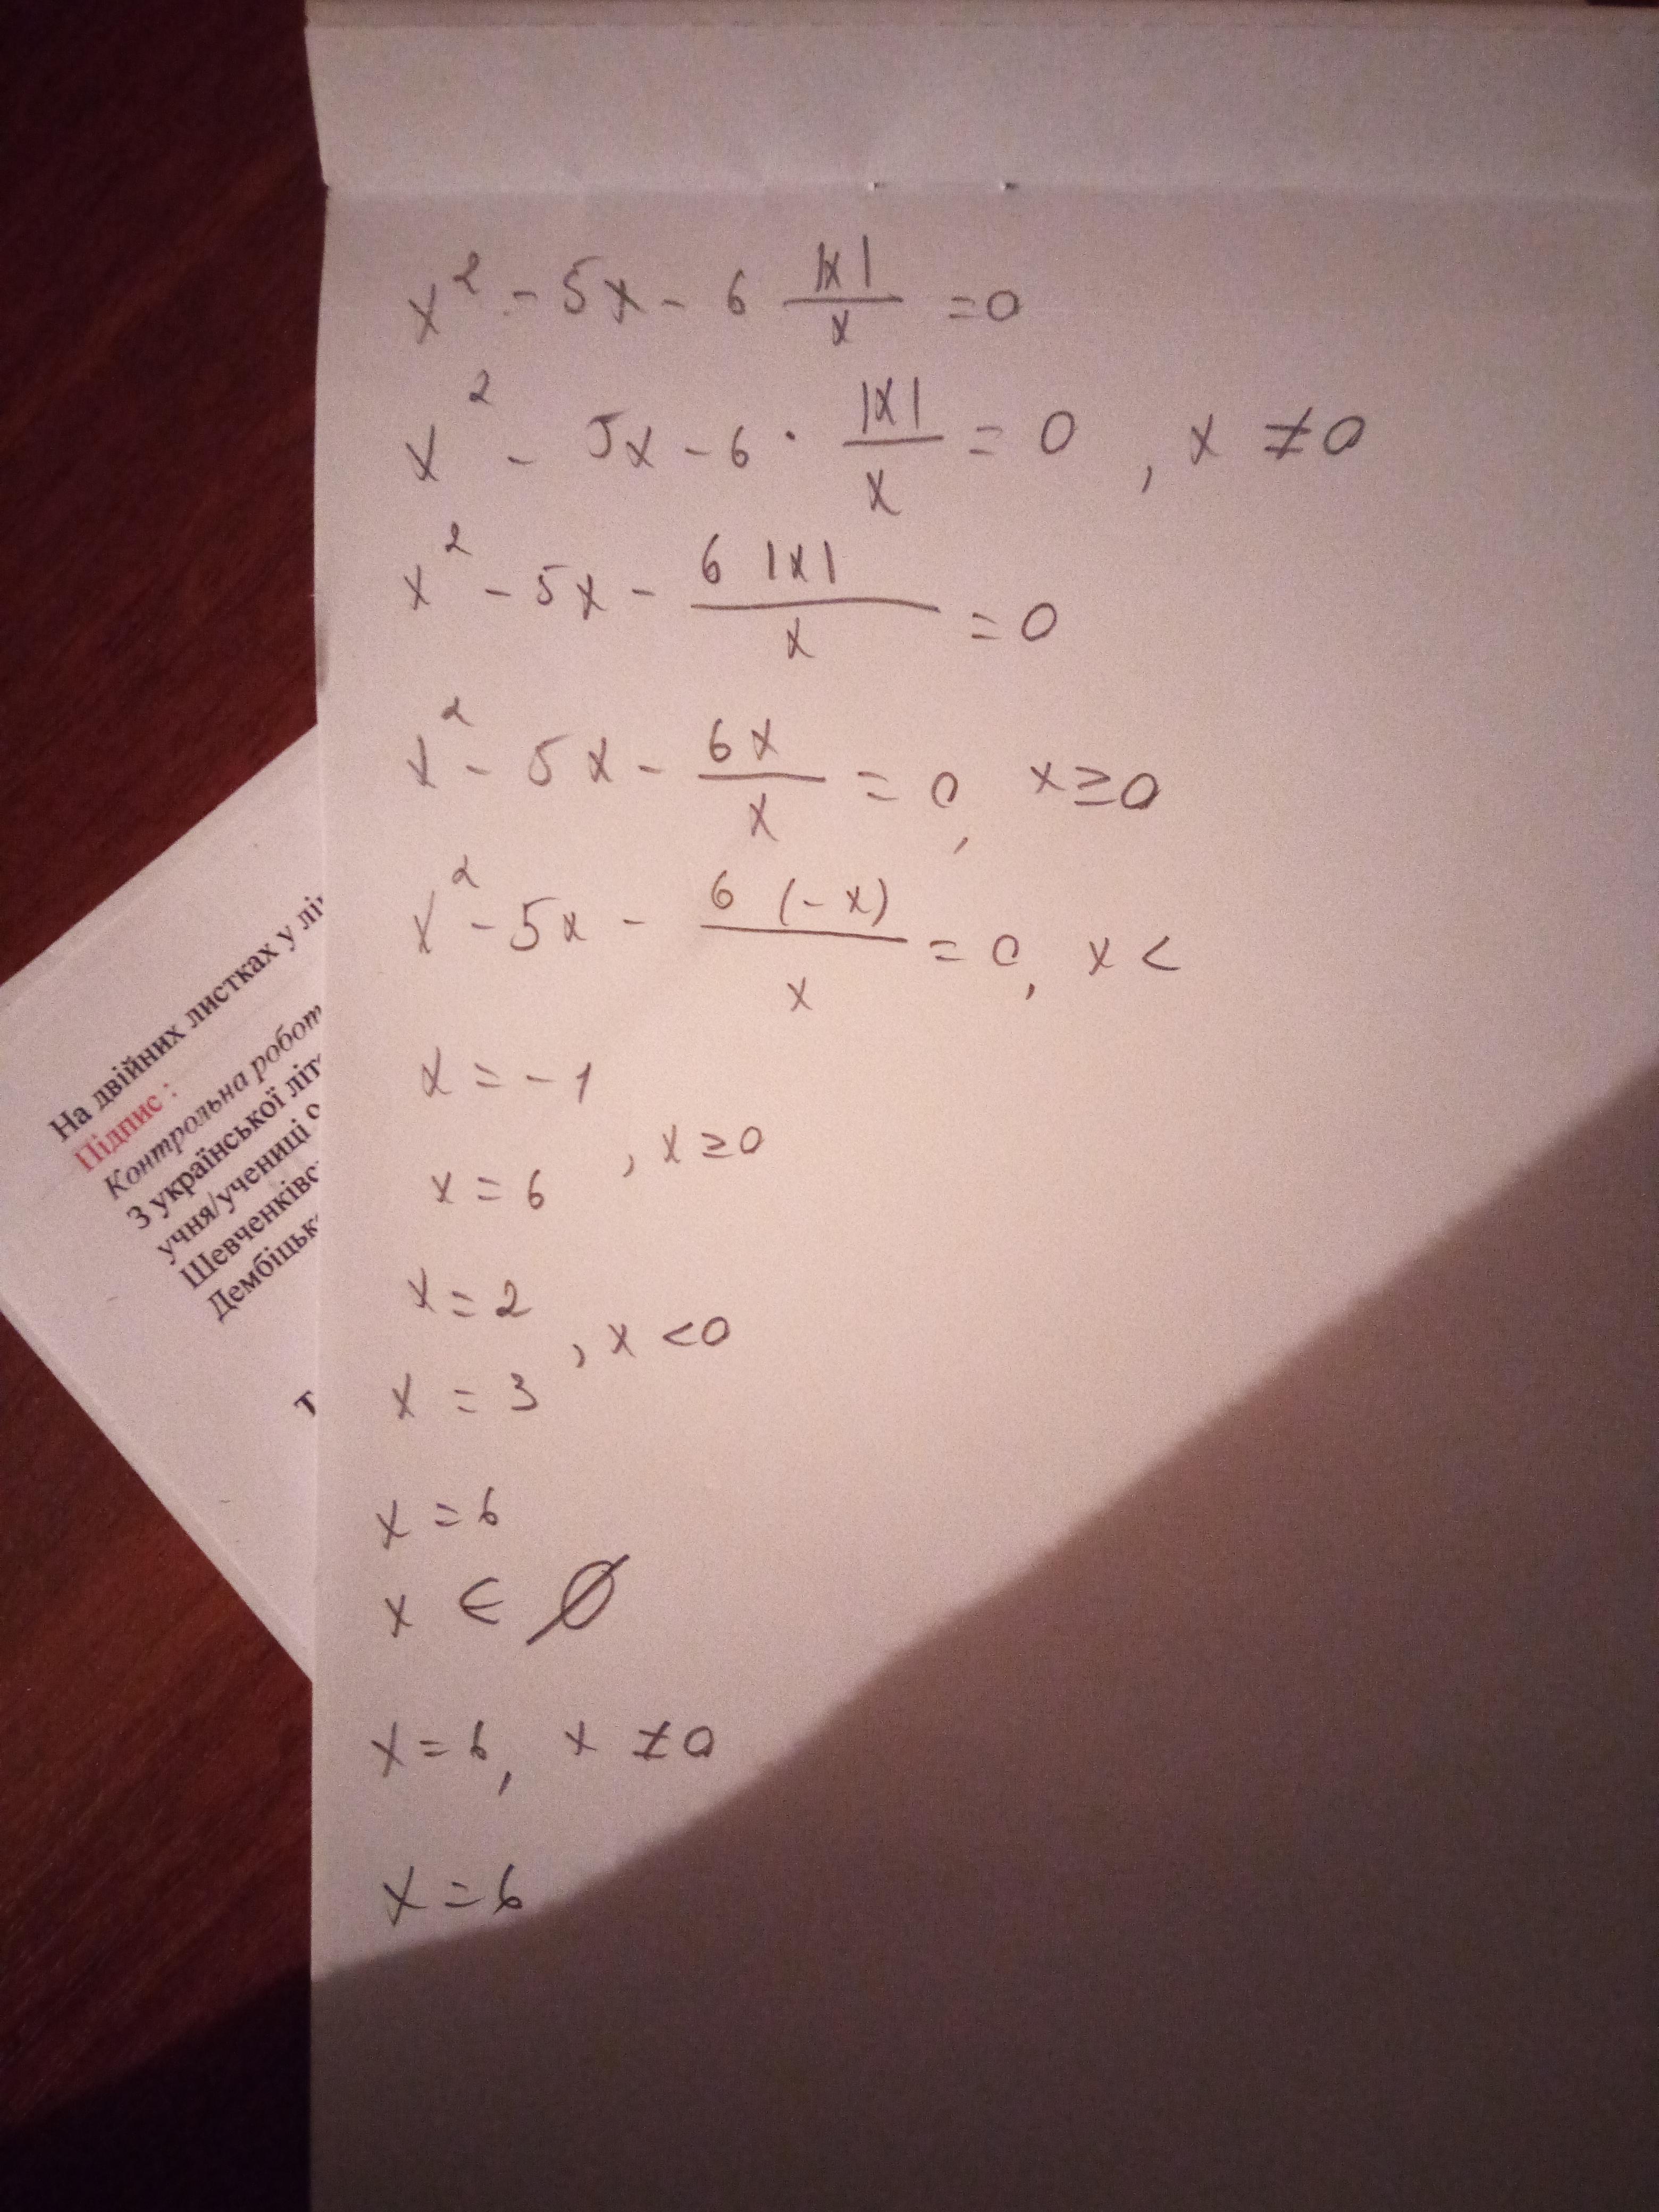 x² - 5x - 6 |x|/x = 0
x² - 5x - 6 · |x|/x = 0 , x ≠ 0
x² - 5x - 6|x|/x = 0
x² - 5x - 6x/x = 0, x ≥ 0
x² - 5x - 6(-x)/x = 0, x <
x = -1
x = 6 , x ≥ 0
x = 2
x = 3 , x < 0
x = 6
x ∈ Ø
x = 6, x ≠ 0
x = 6
На двійних листках у
Підпис :
Контрольна робот
З української літ
учня/учениці
Шевченківс
Дембіцьк